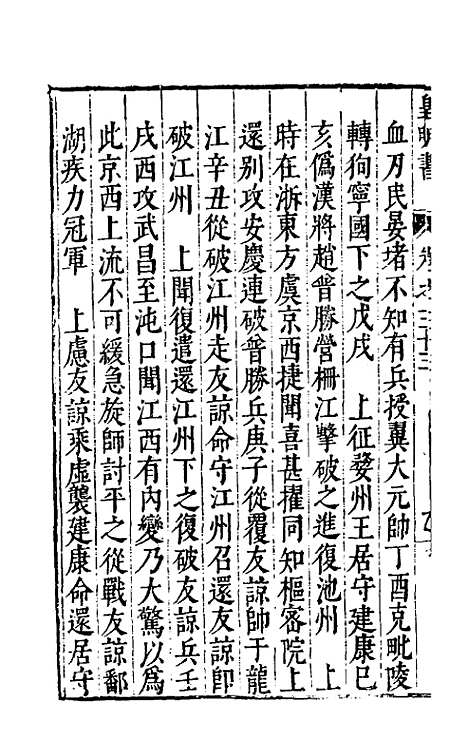 皇明書 卷之三十三
血刃民晏堵不知有兵授翼大元帥丁酉克毗陵
轉狥寧國下之戊戌 上征婺州王居守建康已
亥僞漢將趙普勝營柵江擊破之進復池州 上
時在浙東方虞京西捷聞喜甚擢同知樞密院上
還别攻安慶連破普勝兵庚子從覆友諒帥于龍
江辛丑從破江州走友諒命守江州召還友諒卽
破江州 上聞復遣還江州下之復破友諒兵壬
戌西攻武昌至沌口聞江西有內變乃大驚以爲
此京西上流不可緩急旋師討平之從戰友諒鄱
湖疾力冠軍 上慮友諒乘虛襲建康命還居守